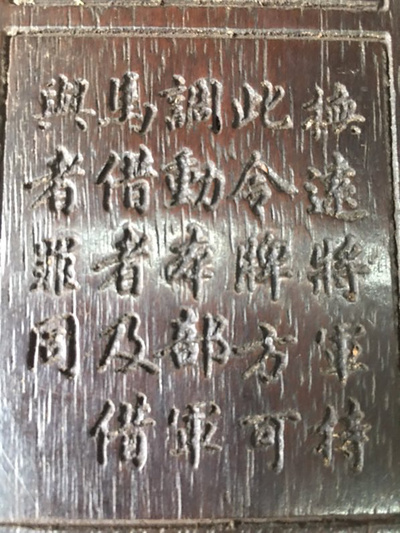 遠將軍持
此令牌方可
調動本部軍
馬借者及借
與者罪同